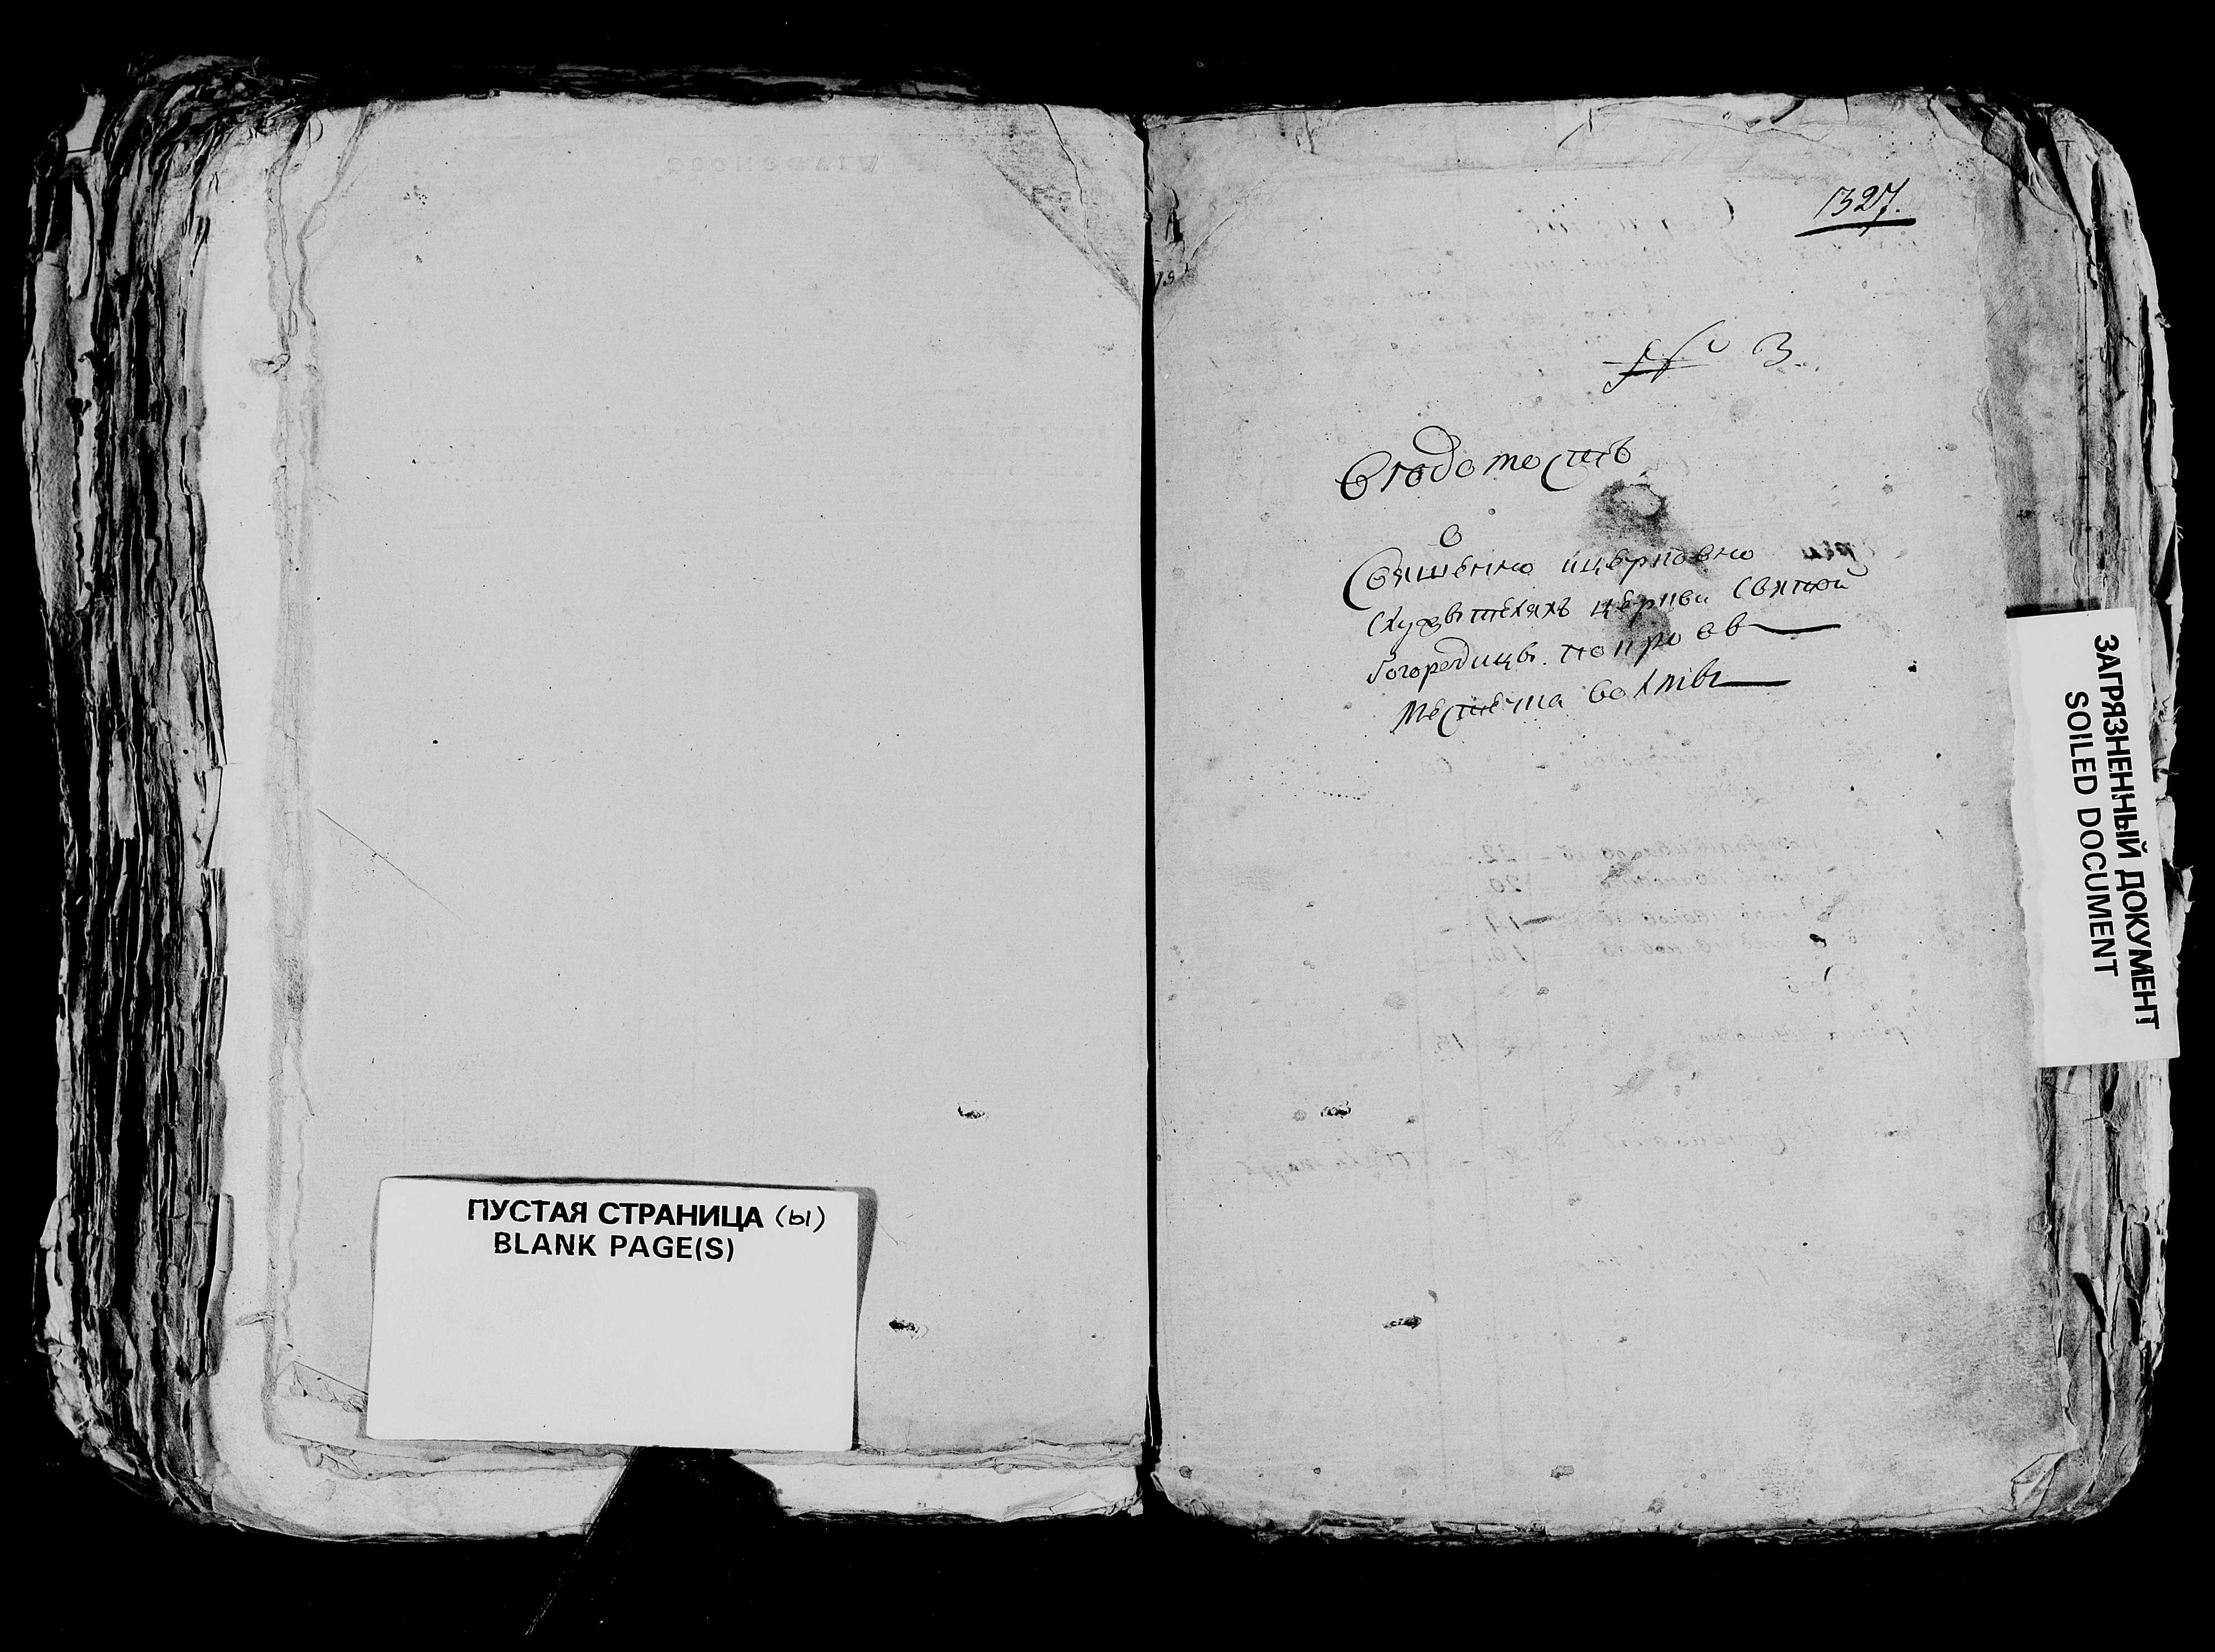 ПУСТАЯ СТРАНИЦА (ы)
BLANK PAGE(S)
1327.
№ 3.
Ведомость
о
Священно ицерковно
служителяхъ церкви Святой
богородицы. покрова
местечка
ЗАГРЯЗНЕННЫЙ ДОКУМЕНТ
SOILED DOCUMENT